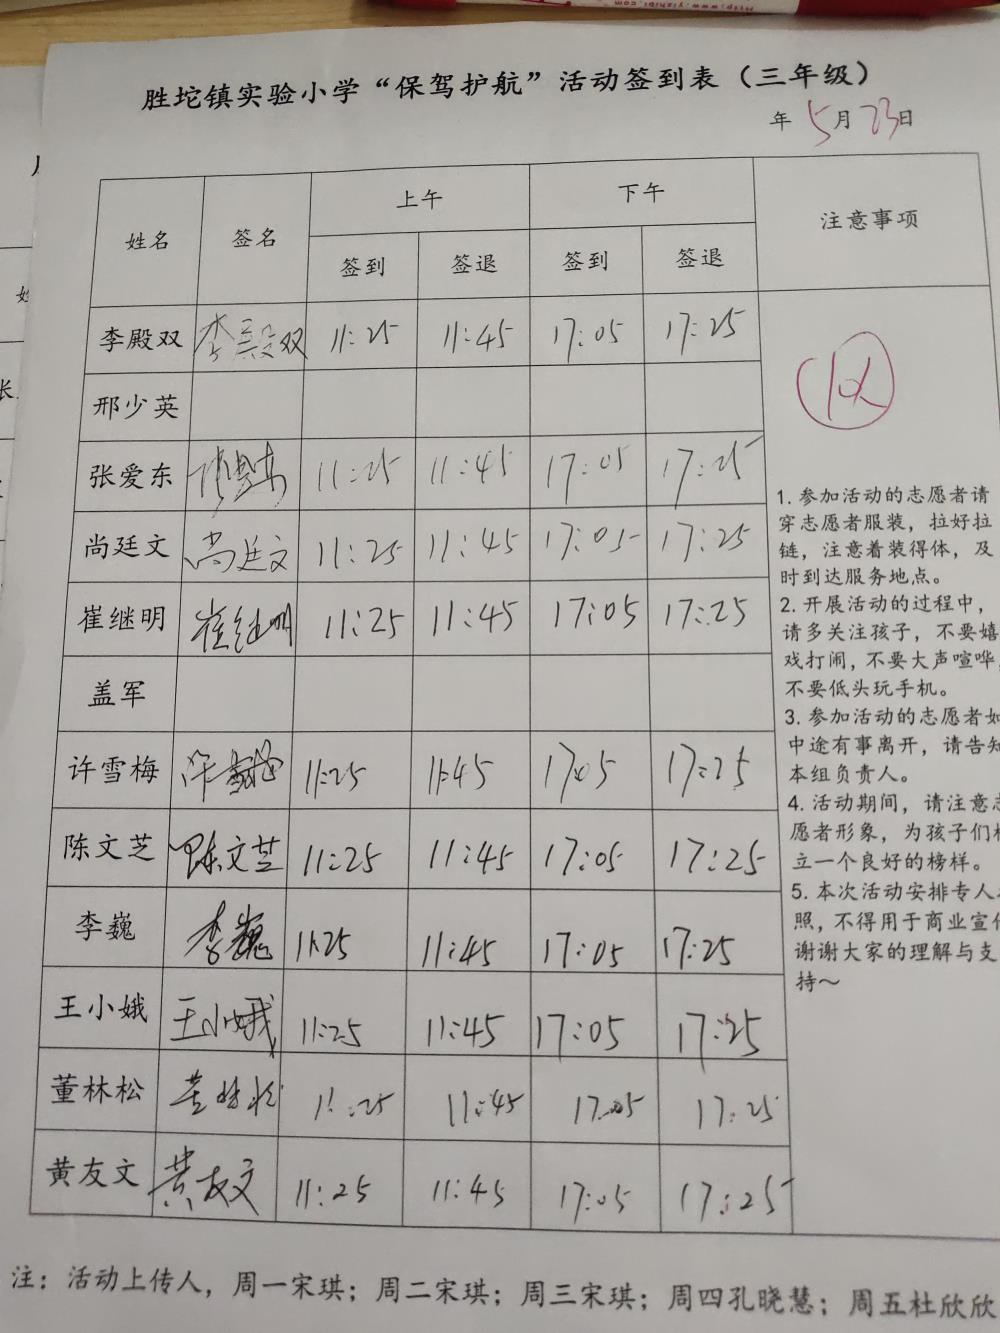 胜坨镇实验小学“保驾护航”活动签到表（三年级）
年 5月23日
姓名 签名 上午 下午 注意事项
签到 签退 签到 签退
李殿双 李殿双 11:25 11:45 17:05 17:25
邢少英
张爱东 张爱东 11:25 11:45 17:05 17:25
尚廷文 尚廷文 11:25 11:45 17:05 17:25
崔继明 崔继明 11:25 11:45 17:05 17:25
盖军
许雪梅 许雪梅 11:25 11:45 17:05 17:25
陈文芝 陈文芝 11:25 11:45 17:05 17:25
李巍 李巍 11:25 11:45 17:05 17:25
王小娥 王小娥 11:25 11:45 17:05 17:25
董林松 董林松 11:25 11:45 17:05 17:25
黄友文 黄友文 11:25 11:45 17:05 17:25
1. 参加活动的志愿者请
穿志愿者服装，拉好拉
链，注意着装得体，及
时到达服务地点。
2. 开展活动的过程中，
请多关注孩子，不要嬉
戏打闹，不要大声喧哗，
不要低头玩手机。
3. 参加活动的志愿者如
中途有事离开，请告知
本组负责人。
4. 活动期间，请注意志
愿者形象，为孩子们树
立一个良好的榜样。
5. 本次活动安排专人
照，不得用于商业宣传
谢谢大家的理解与支
持～
注：活动上传人，周一宋琪；周二宋琪；周三宋琪；周四孔晓慧；周五杜欣欣